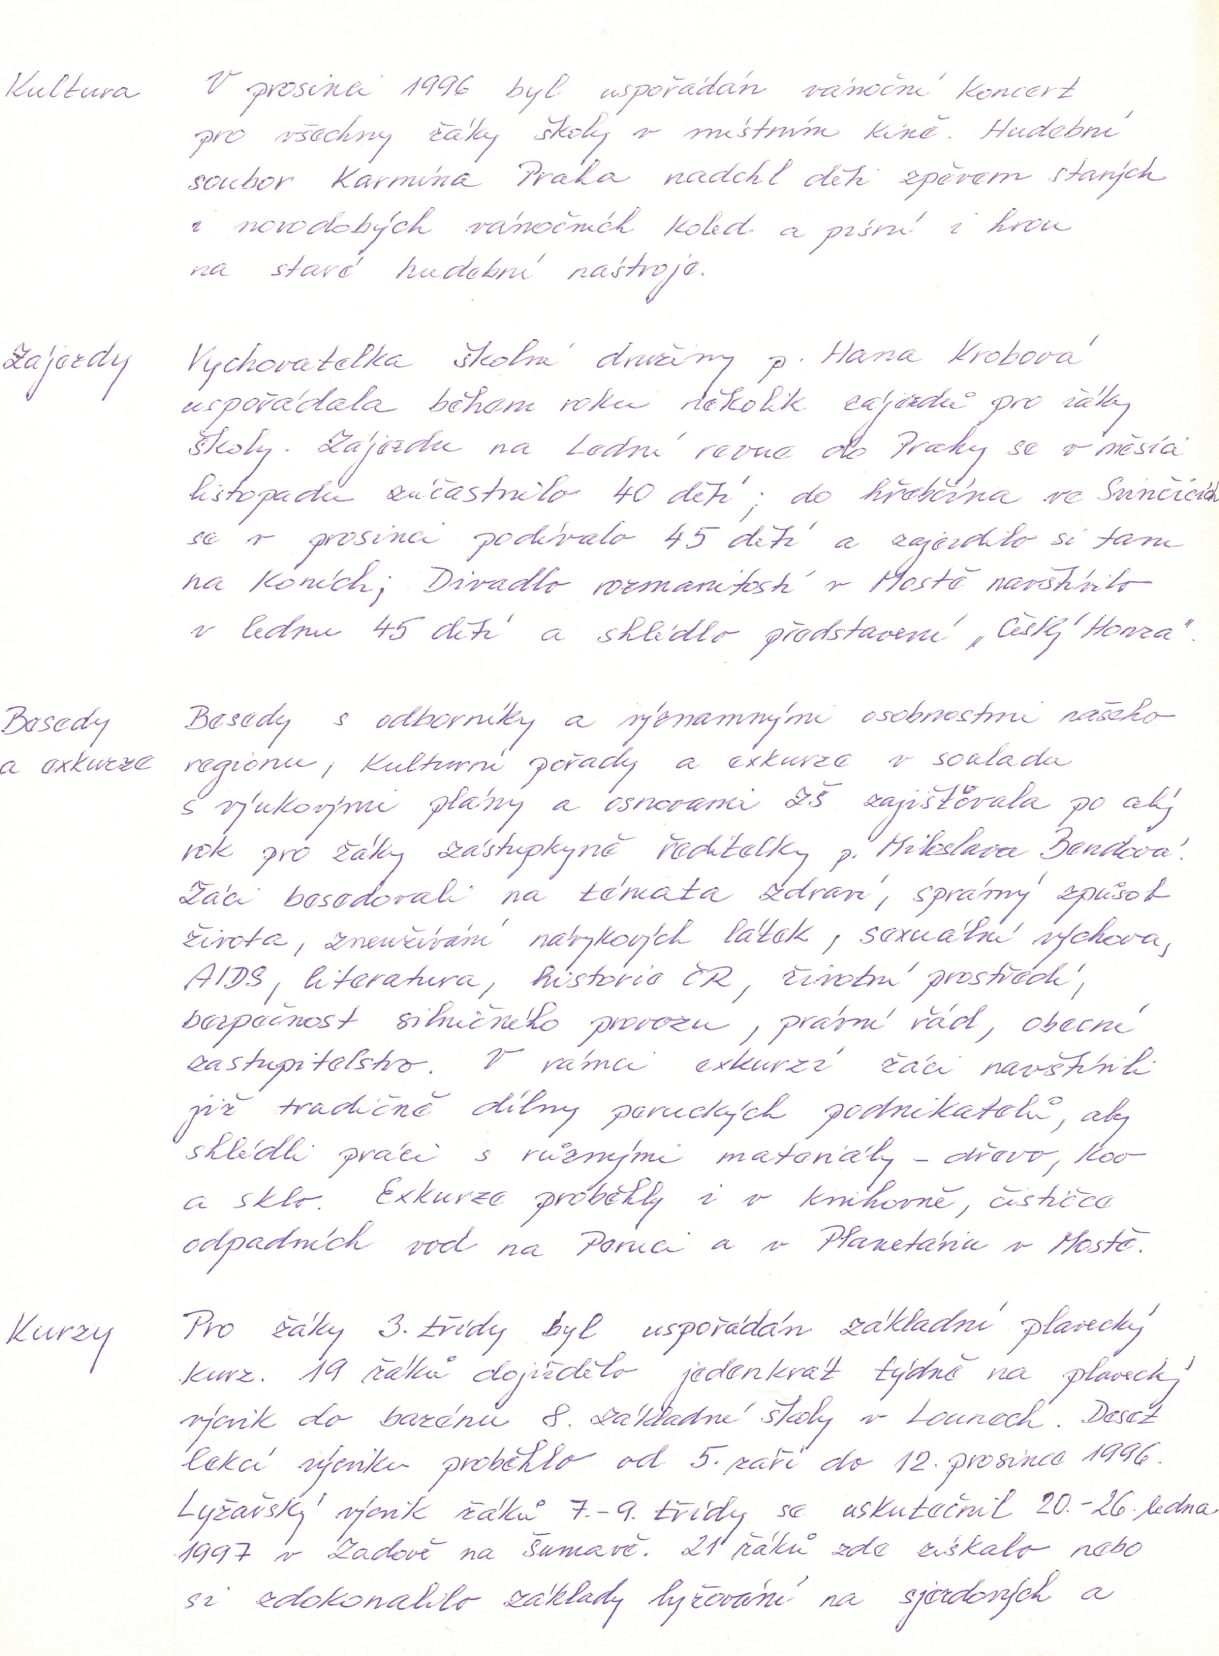 Kultura V prosinci 1996 byl uspořádán vánoční koncert
pro všechny žáky školy v místním kině. Hudební
soubor Karmína Praha nadchl děti zpěvem starých
i novodobých vánočních koled a písní i hrou
na staré hudební nástroje.
Zájezdy Vychovatelka školní družiny p. Hana Krobová
uspořádala během roku několik zájezdů pro žáky
školy. Zájezdu na Lední revue do Prahy se v měsíci
listopadu zúčastnilo 40 dětí; do hřebčína ve Svinčicích
se v prosinci podívalo 45 dětí a zajezdilo si tam
na koních; Divadlo rozmanitostí v Mostě navštívilo
v lednu 45 dětí a shlédlo představení „Český Honza".
Besedy Besedy s odborníky a významnými osobnostmi našeho
a exkurze regionu, kulturní pořady a exkurze v souladu
s výukovými plány a osnovami ZŠ zajišťovala po celý
rok pro žáky zástupkyně ředitelky p. Miloslava Bendová.
Žáci besedovali na témata zdraví, správný způsob
života, zneužívání návykových látek, sexuální výchova,
AIDS, literatura, historie ČR, životní prostředí,
bezpečnost silničního provozu, právní řád, obecní
zastupitelstvo. V rámci exkurzí žáci navštívili
již tradičně dílny peruckých podnikatelů, aby
shlédli práci s různými materiály – dřevo, kov
a sklo. Exkurze proběhly i v knihovně, čističce
odpadních vod na Peruci a v Planetáriu v Mostě.
Kurzy Pro žáky 3. třídy byl uspořádán základní plavecký
kurz. 19 žáků dojíždělo jedenkrát týdně na plavecký
výcvik do bazénu 8. základní školy v Lounech. Deset
lekcí výcviku proběhlo od 5. září do 12. prosince 1996.
Lyžařský výcvik žáků 7.-9. třídy se uskutečnil 20.-26. ledna
1997 v Zadově na Šumavě. 21 žáků zde získalo nebo
si zdokonalilo základy lyžování na sjezdových a